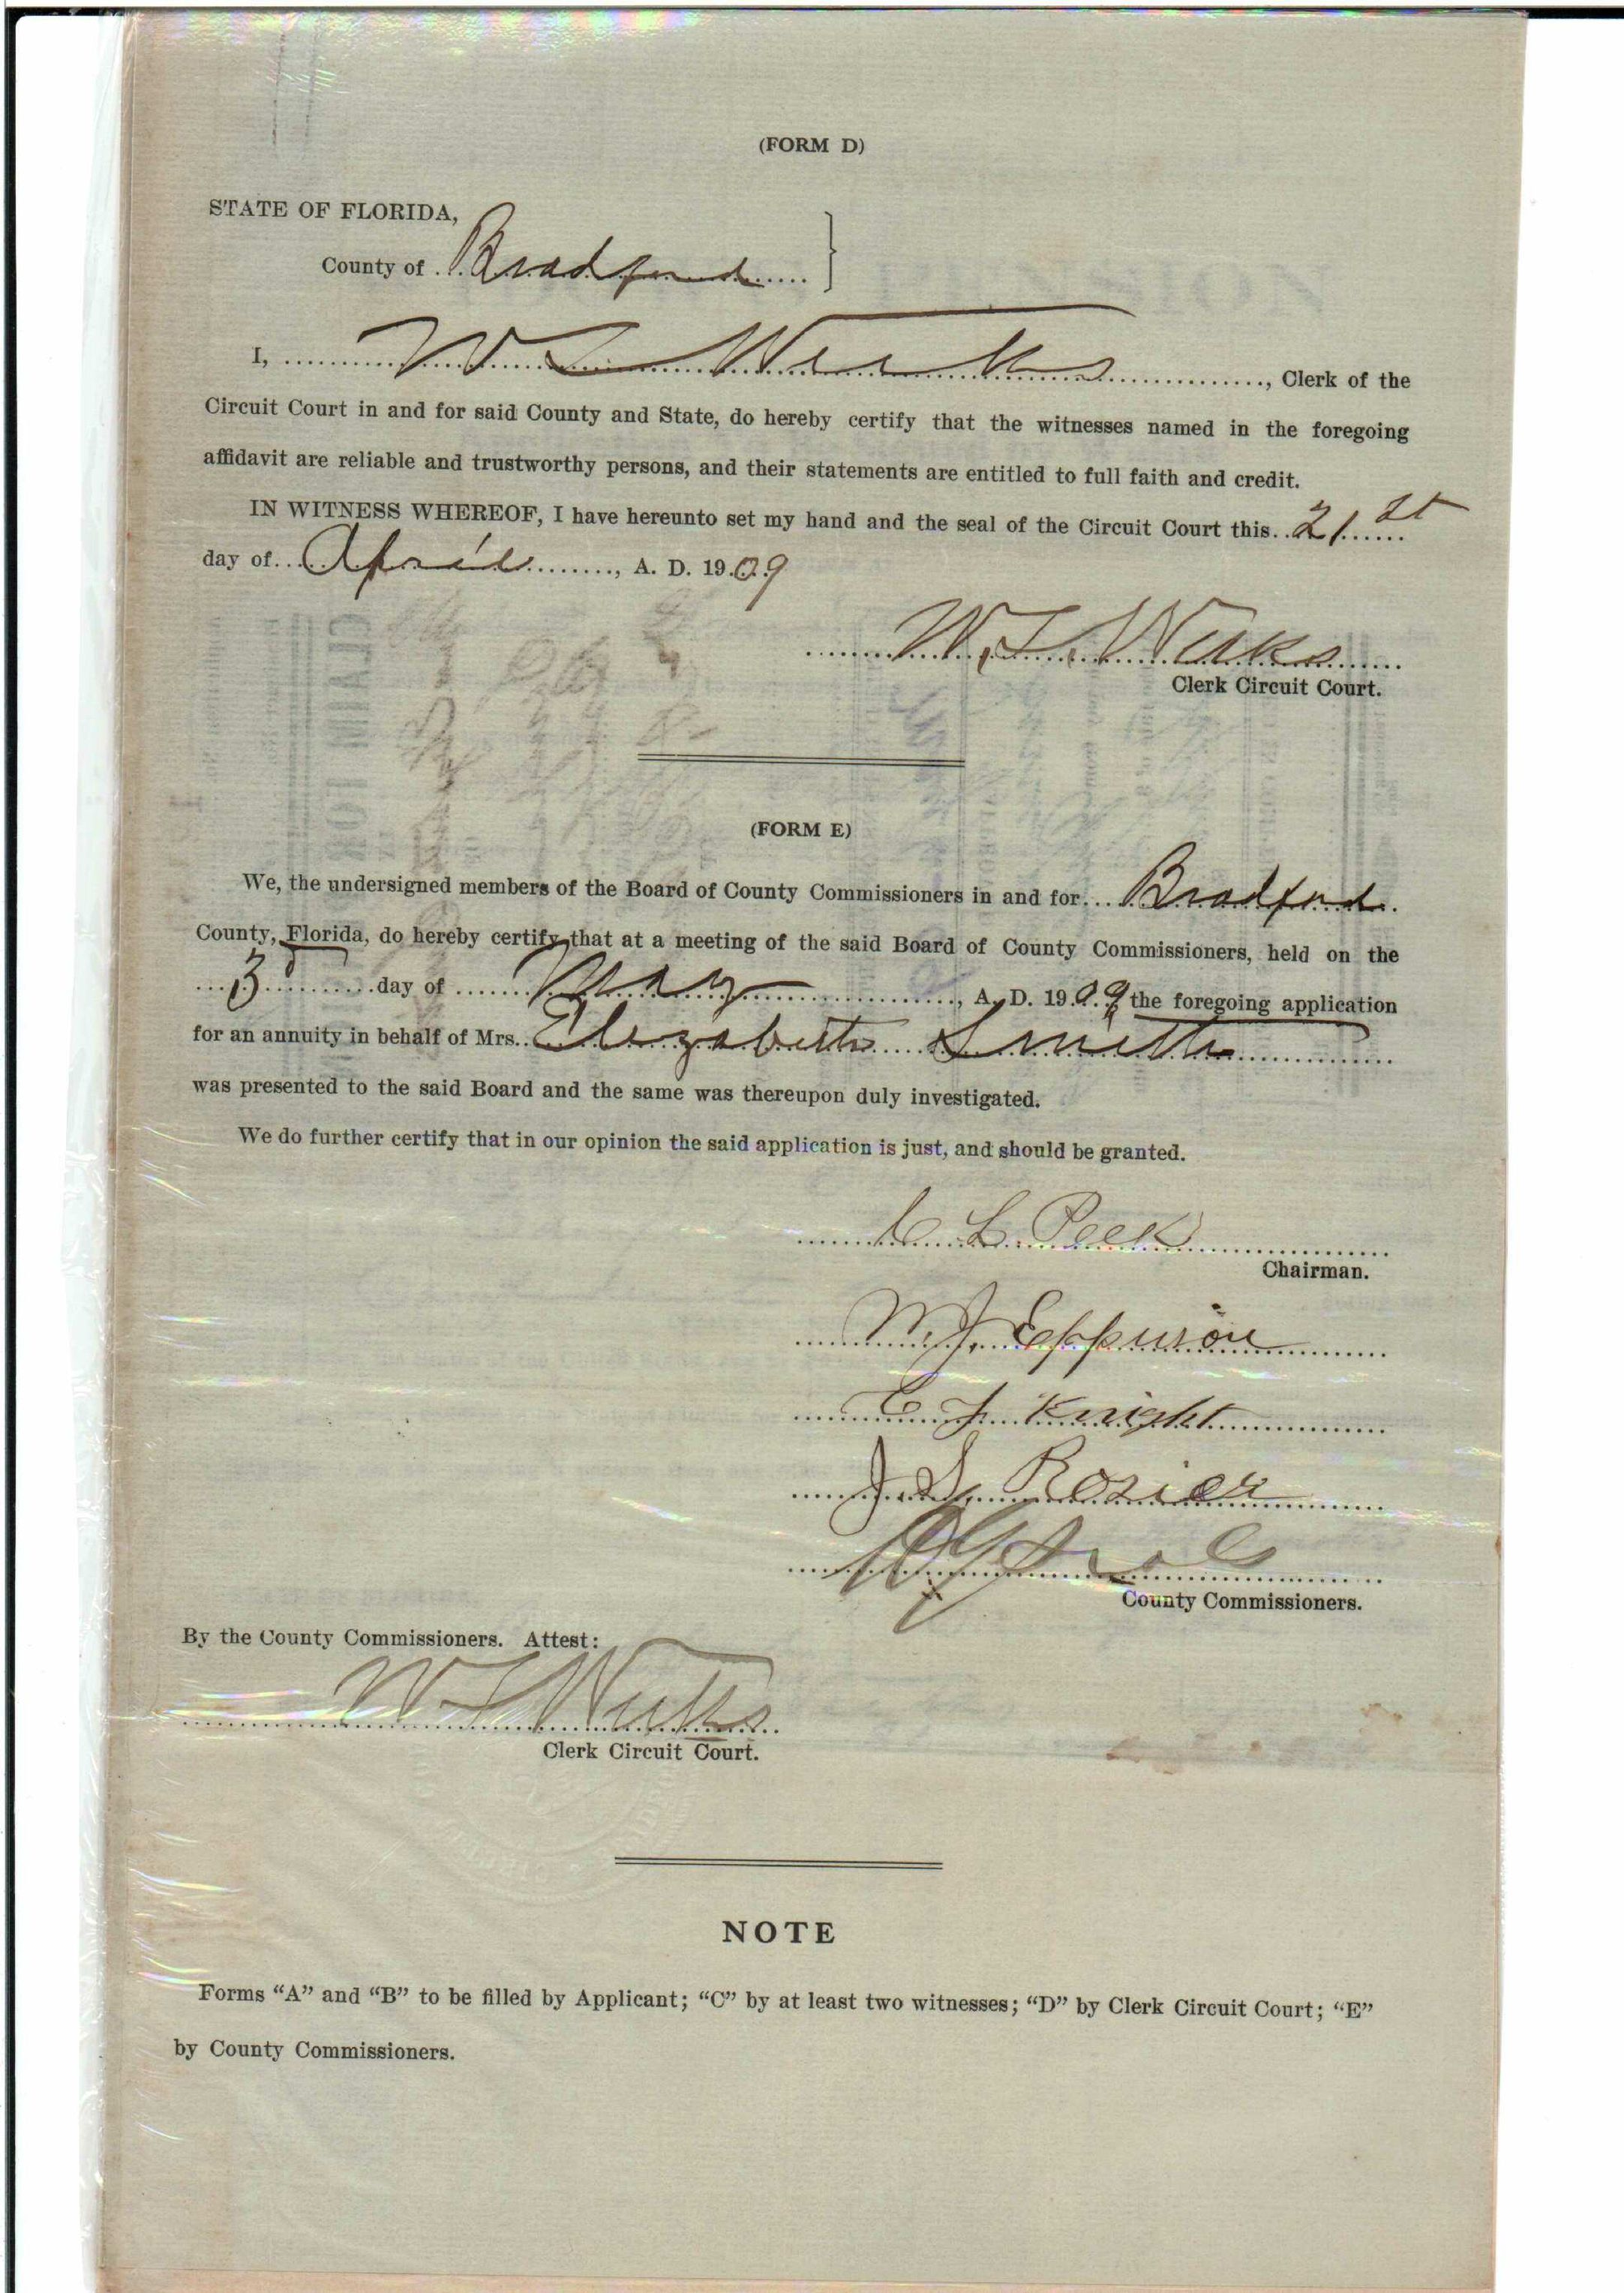 (FORM D)
STATE OF FLORIDA,
County of Bradford }
I, W. T. Weeks, Clerk of the
Circuit Court in and for said County and State, do hereby certify that the witnesses named in the foregoing
affidavit are reliable and trustworthy persons, and their statements are entitled to full faith and credit.
IN WITNESS WHEREOF, I have hereunto set my hand and the seal of the Circuit Court this 21st
day of April, A. D. 1909
Weeks
Clerk Circuit Court.
(FORM E)
We, the undersigned members of the Board of County Commissioners in and for Bradford
County, Florida, do hereby certify that at a meeting of the said Board of County Commissioners, held on the
3 day of May, A. D. 1909 the foregoing application
for an annuity in behalf of Mrs. Elizabeth Smith
was presented to the said Board and the same was thereupon duly investigated.
We do further certify that in our opinion the said application is just, and should be granted.
C L Peek
Chairman.
M. J. Epperson
Knight
J. S. Rosier
County Commissioners.
By the County Commissioners. Attest:
Weeks
Clerk Circuit Court.
NOTE
Forms "A" and "B" to be filled by Applicant; "C" by at least two witnesses; "D" by Clerk Circuit Court; "E"
by County Commissioners.